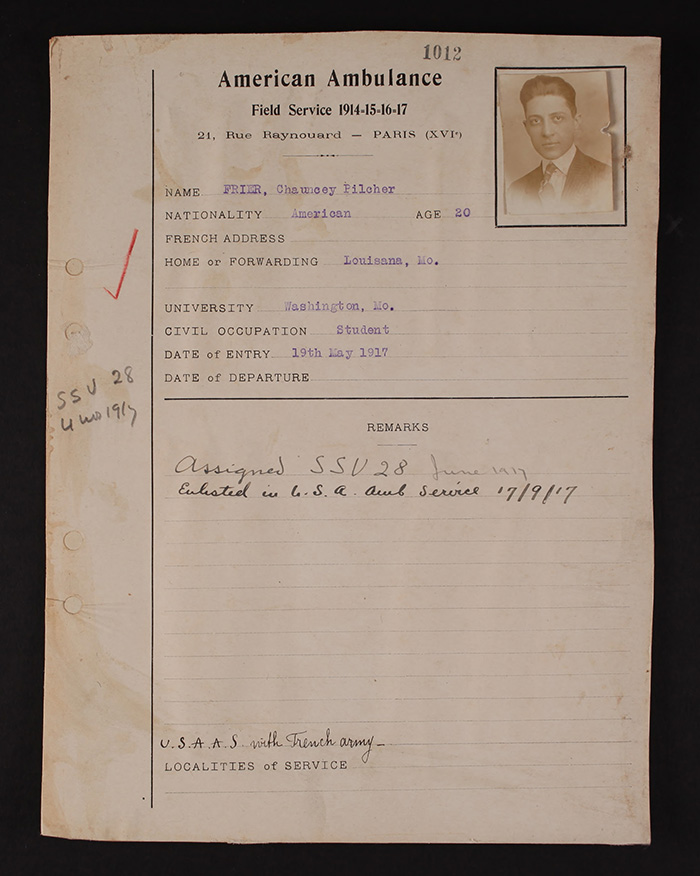 1012
American Ambulance
Field Service 1914-15-16-17
21, Rue Raynouard — PARIS (XVIe)
NAME FRIER, Chauncey Pilcher
NATIONALITY American AGE 20
FRENCH ADDRESS
HOME or FORWARDING Louisana, Mo.
UNIVERSITY Washington, Mo.
CIVIL OCCUPATION Student
DATE of ENTRY 19th May 1917
DATE of DEPARTURE
SSU 28
4 1917
REMARKS
Assigned SSU 28 June 1917
Enlisted in U.S.A. Amb Service 17/9/17
U.S.A.A.S. with French army—
LOCALITIES of SERVICE